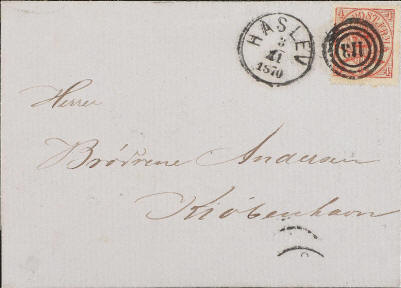 HASLEV
3
11
1870
113
Herrer
Brødrene Andersen
Kiöbenhavn